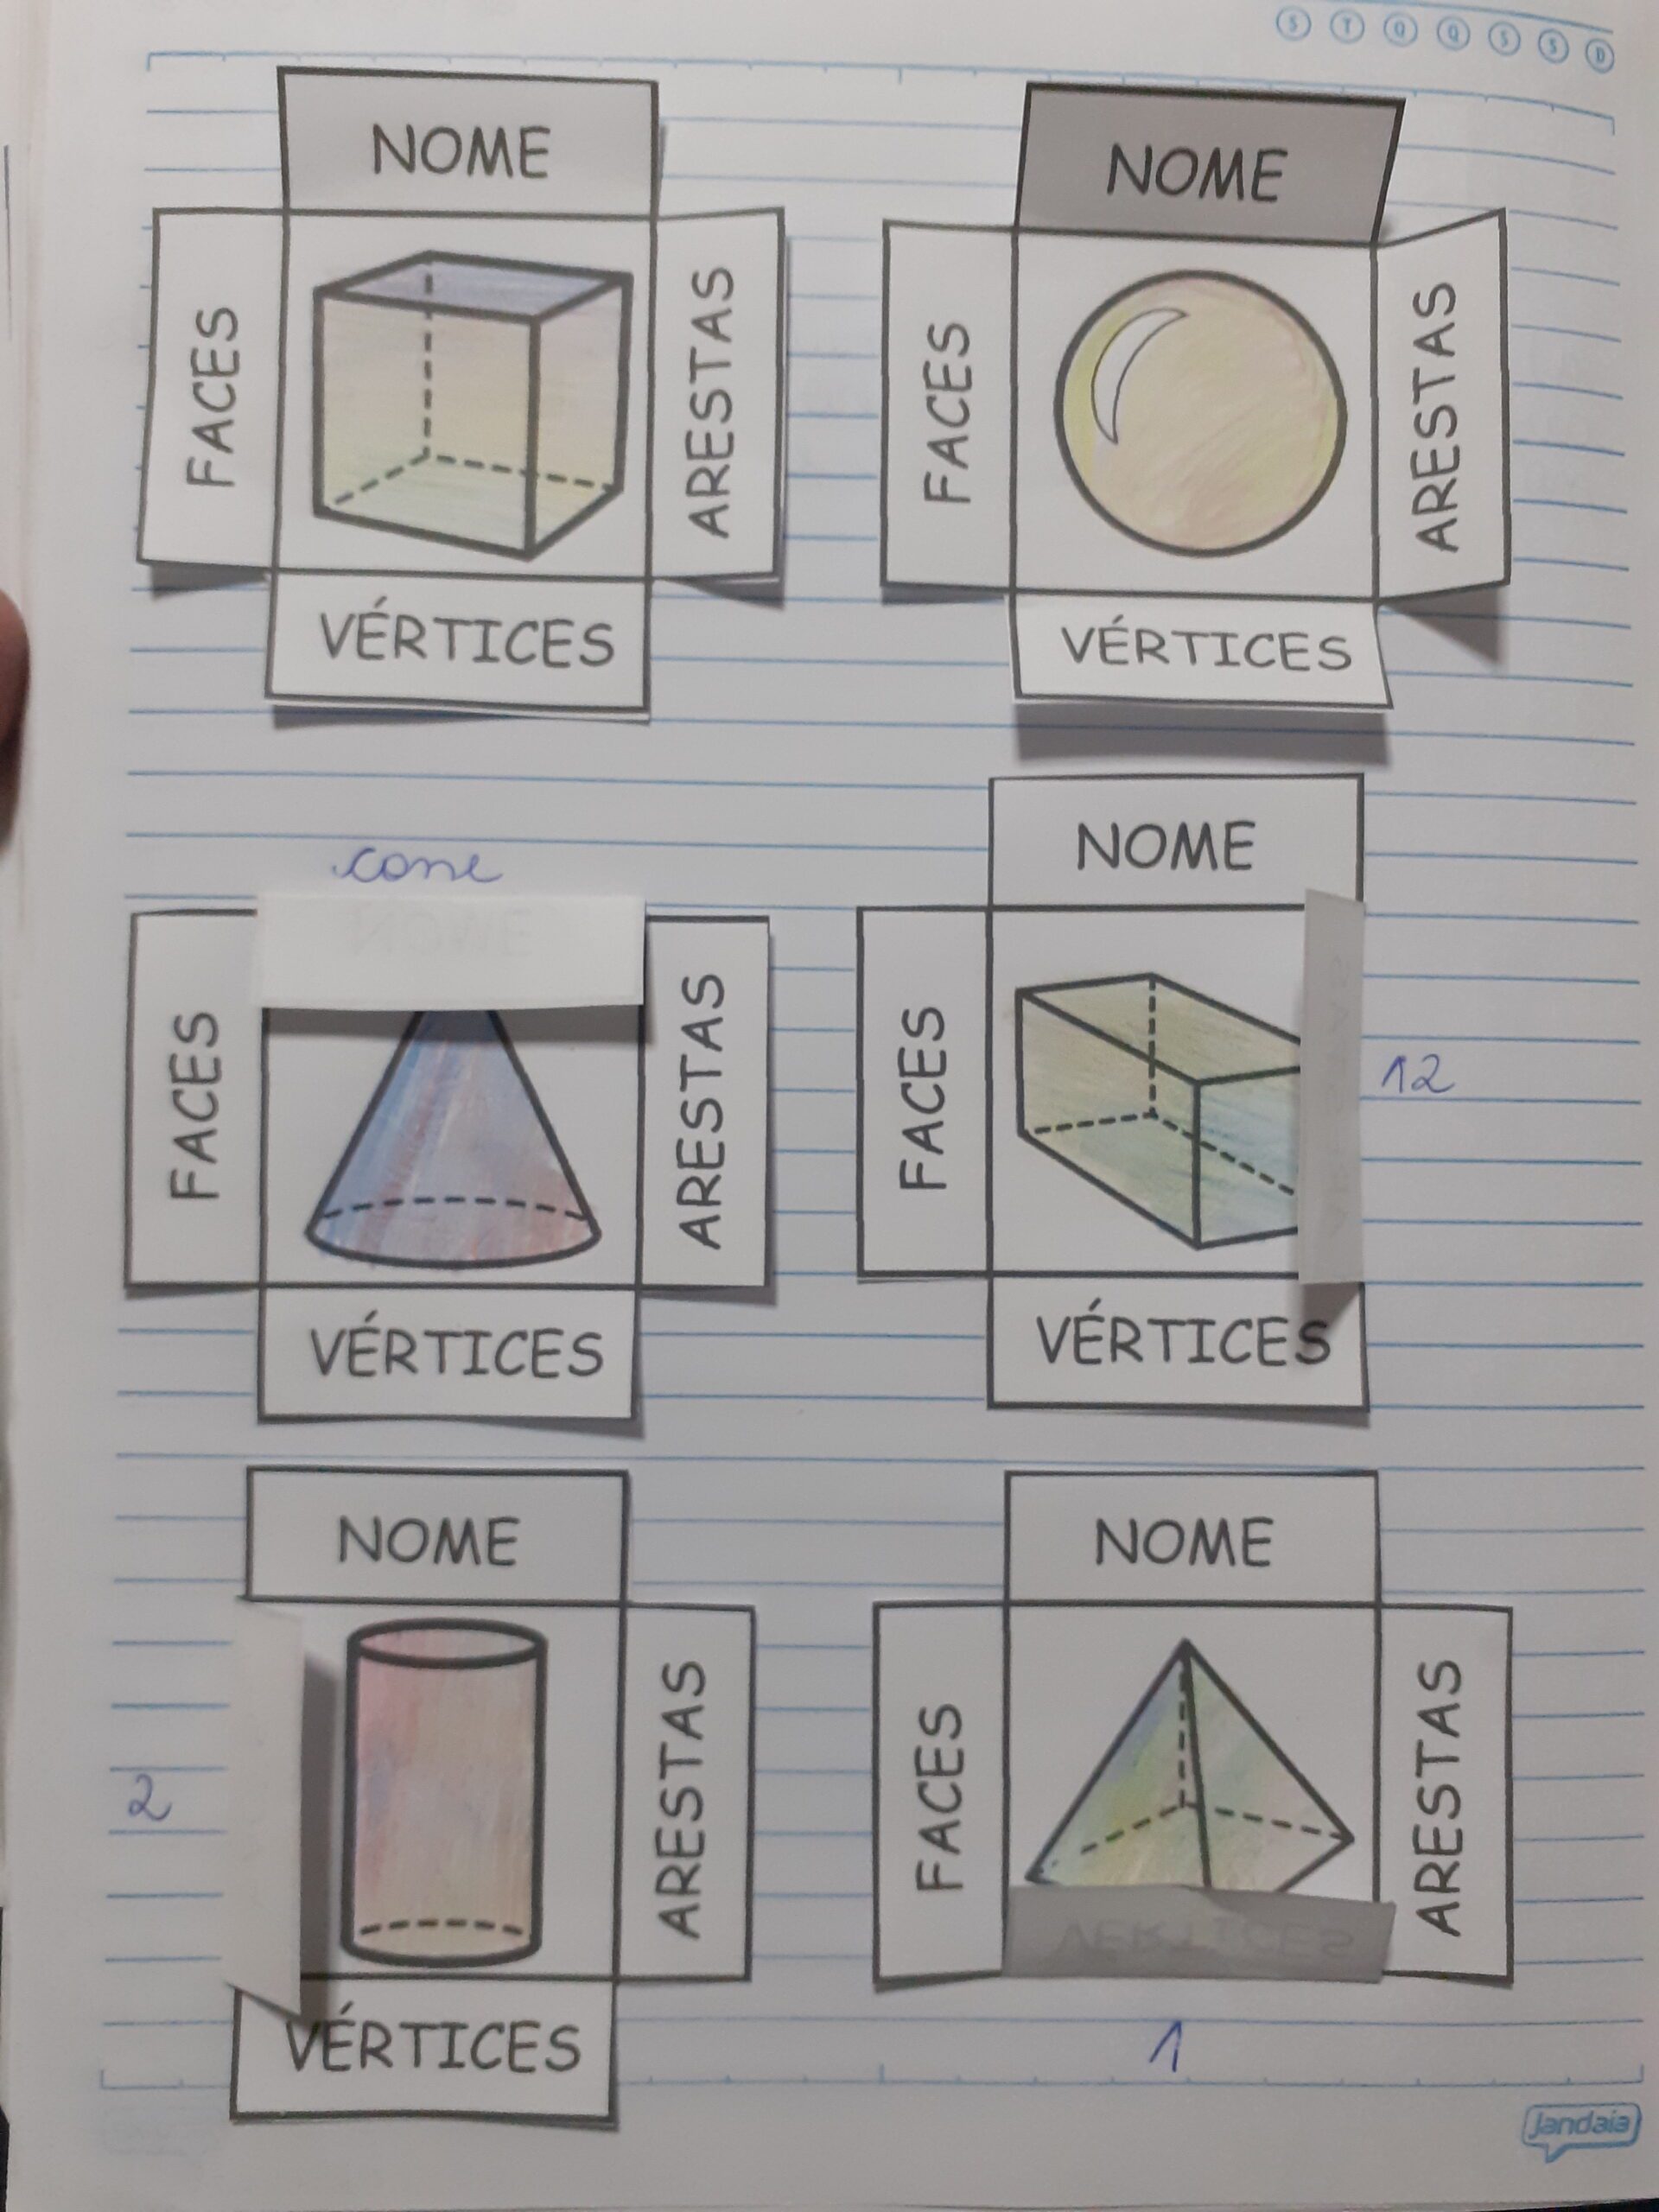 S T Q Q S S D
NOME
FACES
ARESTAS
VÉRTICES
NOME
FACES
ARESTAS
VÉRTICES
cone
NOME
FACES
ARESTAS
VÉRTICES
NOME
FACES
12
VÉRTICES
NOME
2
ARESTAS
VÉRTICES
NOME
FACES
ARESTAS
VÉRTICES
1
Jandaia